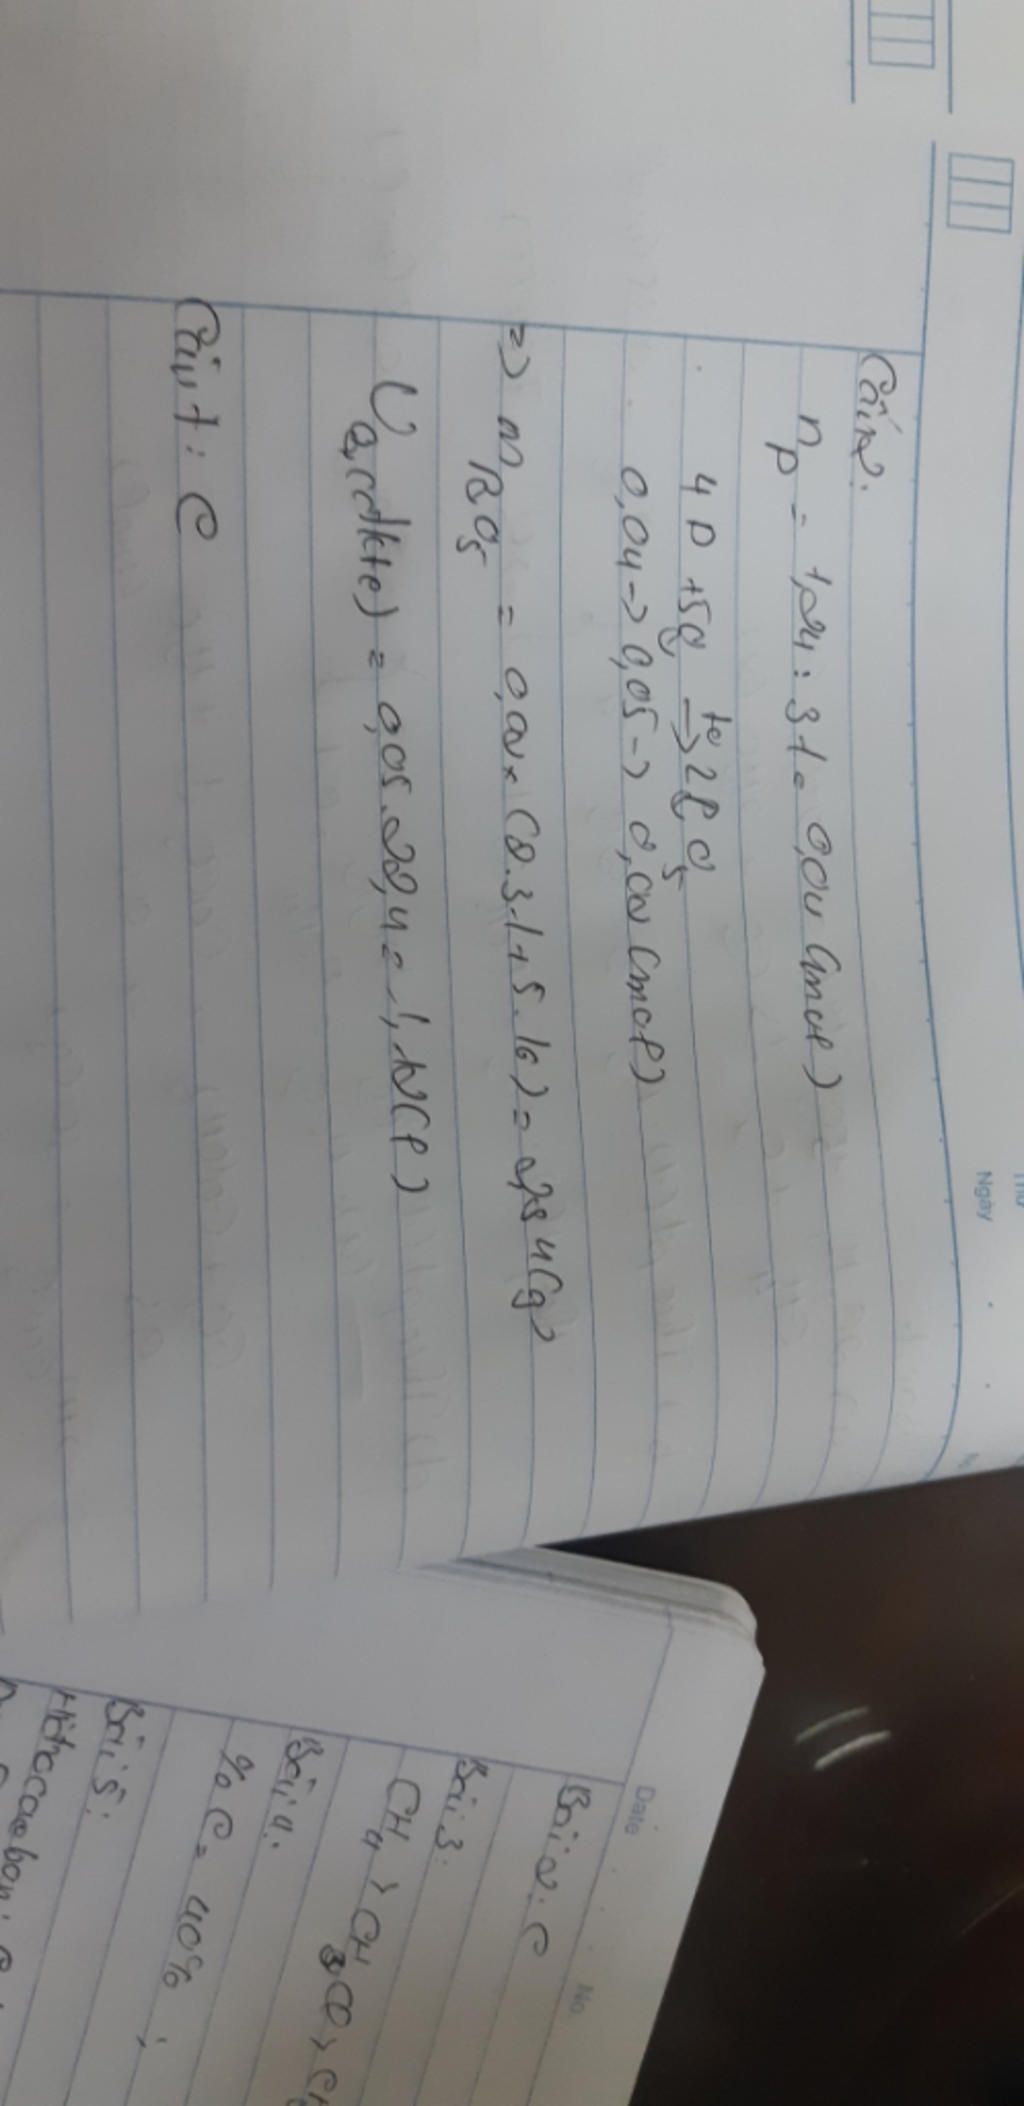 Ngày
Câu 2:
n P = 1,24 : 31 = 0,04 (mol)
4P + 5O2 t° → 2P2O5
0,04 → 0,05 → 0,02 (mol)
=> m P2O5 = 0,02 × (2.31 + 5.16) = 2,84 (g)
V O2 (đktc) = 0,05.22,4 = 1,12 (l)
Câu 1: C
Date No.
Bài 2: C
Bài 3:
CH4 > CH3Cl >
Bài 4:
% C = 40% ;
Bài 5:
Hiđrocacbon: